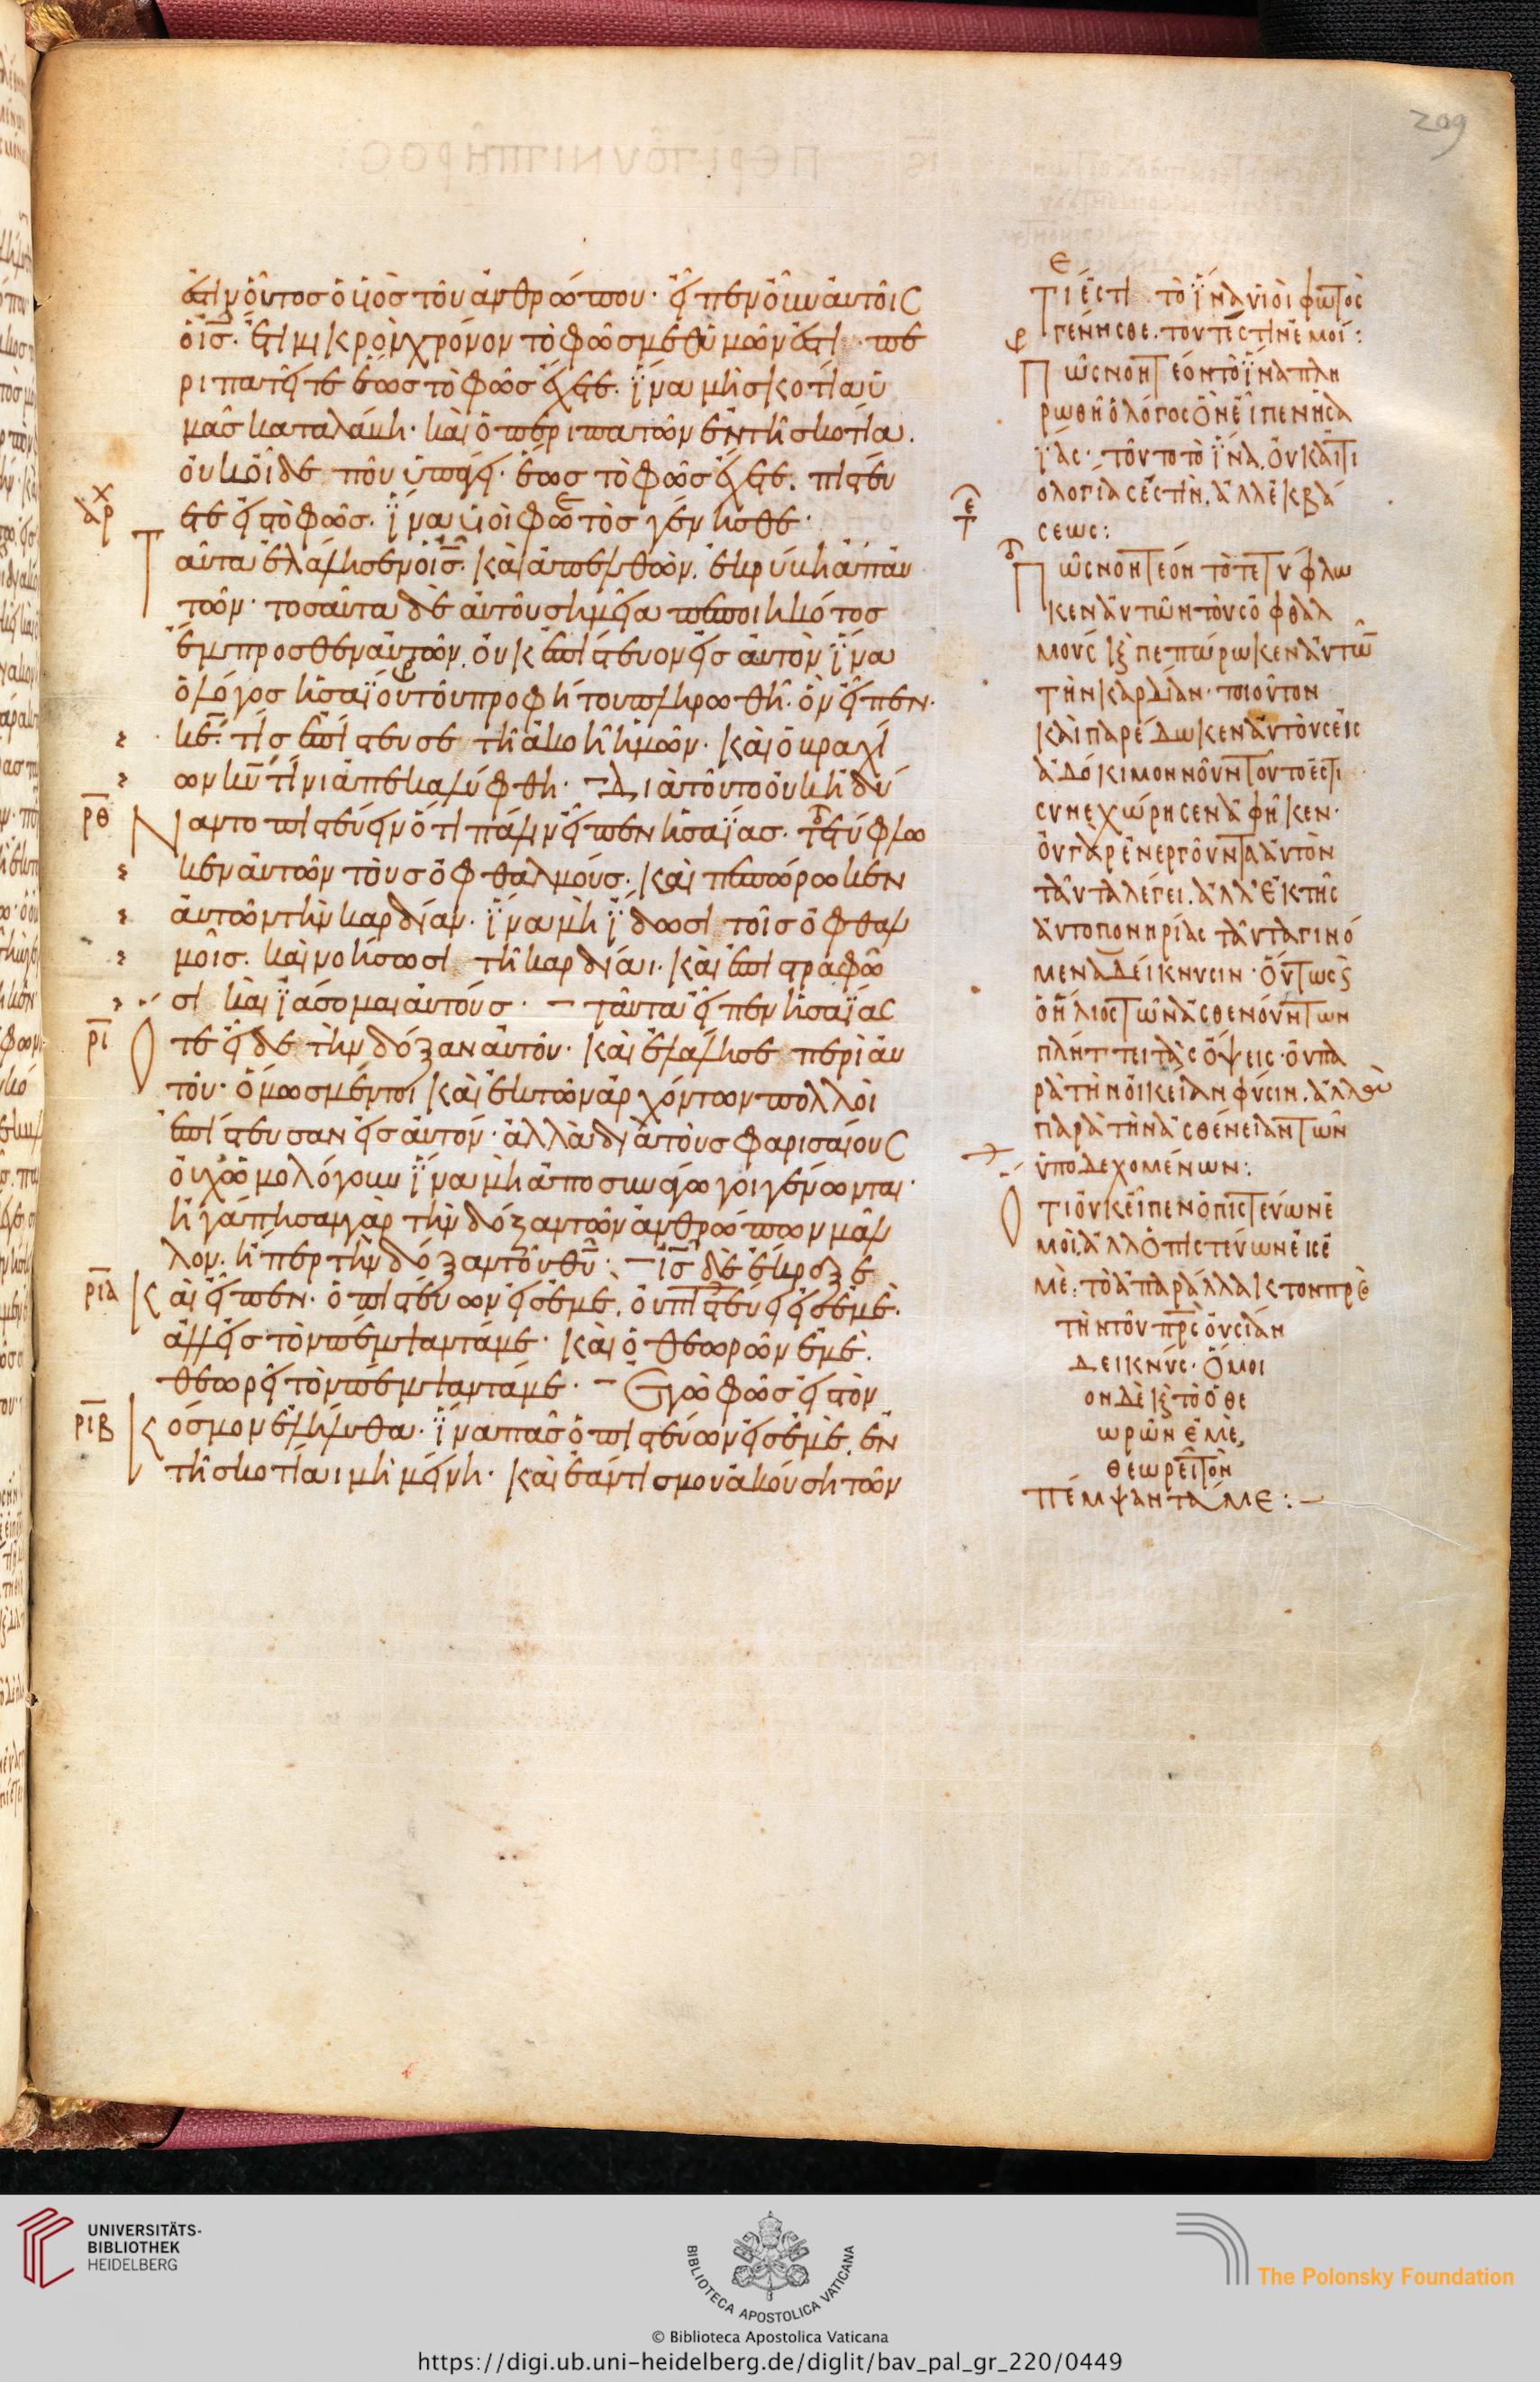 209
ἐστὶν οὗτος ὁ ὑιὸς τοῦ ἀνθρώπου· εἶπεν οὖν ἀυτοῖς
ὁ ισ̄· ἔτι μικρὸν χρόνον τὸ φῶς μεθ' ὑμῶν ἐστὶ· πε
ριπατεῖτε ἕως τὸ φῶς ἔχετε. ἵνα μὴ σκοτία ὑ
μᾶς καταλάβη· καὶ ὁ περιπατῶν ἐν τῆ σκοτία.
ὀυκ οἶδε ποῦ ὑπάγει· ἕως τὸ φῶς ἔχετε. πιστεύ
ετε εἰς τὸ φῶς. ἵνα ὑιοὶ φωτὸς γένησθε·
Ταῦτα ἐλάλησεν ὁ ισ̄. καὶ ἀπελθὼν. ἐκρύβη ἀπ' ἀυ
τῶν· τοσαῦτα δὲ ἀυτοῦ σημεῖα πεποιηκότος
ἔμπροσθεν ἀυτῶν. ὀυκ ἐπίστευον εἰς ἀυτὸν ἵνα
ὁ λόγος ἠσαΐου τοῦ προφήτου πληρωθῆ· ὃν εἶπεν·
κε̄· τίς ἐπίστευσε τῆ ἀκοῆ ἡμῶν· καὶ ὁ βραχί
ων κῡ τίνι ἀπεκαλύφθη· Διὰ τοῦτο ὀυκ ἠδύ
ρθ Ναντο πιστεύειν ὅτι πάλιν εἶπεν ἠσαΐας· τετύφλω
κεν ἀυτῶν τοὺς ὀφθαλμούς· καὶ πεπώρωκεν
ἀυτῶν τὴν καρδίαν· ἵνα μὴ ἴδωσι τοῖς ὀφθαλ
μοῖς. καὶ νοήσωσι τῆ καρδίαι· καὶ ἐπιστραφῶ
σι καὶ ἰάσομαι ἀυτούς· ταῦτα εἶπεν ἠσαΐας
ρι Ὅτε εἶδε τὴν δόξαν ἀυτοῦ· καὶ ἐλάλησε περὶ ἀυ
τοῦ· ὅμως μέντοι καὶ ἐκ τῶν ἀρχόντων πολλοὶ
ἐπίστευσαν εἰς ἀυτόν· ἀλλὰ διὰ τοὺς φαρισαίους
ὀυχ ὡμολόγουν ἵνα μὴ ἀποσυνάγωγοι γένωνται·
ἠγάπησαν γὰρ τὴν δόξαν τῶν ἀνθρώπων μᾶλ
λον. ἤπερ τὴν δόξαν τοῦ θῡ· ισ̄ δὲ ἔκραξε
ρια Καὶ εἶπεν· ὁ πιστεύων εἰς ἐμὲ. ὀυ πιστεύει εἰς ἐμὲ·
ἀλλ' εἰς τὸν πέμψαντά με· καὶ ὁ θεωρῶν ἐμὲ.
θεωρεῖ τὸν πέμψαντά με· Ἐγὼ φῶς εἰς τὸν
ριβ Κόσμον ἐλήλυθα· ἵνα πᾶς ὁ πιστεύων εἰς ἐμὲ. ἐν
τῆ σκοτίαι μὴ μείνη· καὶ ἐάν τίς μου ἀκούση τῶν
Ε
Τί ἐστι τὸ ἵνα ὑιὸι φωτὸς
γένησθε. τουτέστιν ἐμοί:
Πῶς νοητέον τὸ ἵνα πλη
ρωθῆ ὁ λόγος ὃν εἶπεν ἠσα
ΐας· τοῦτο τὸ ἵνα. ὀυκ ἀιτι
ολογίας ἐστὶν. ἀλλ' ἐκβά
σεως:
Πῶς νοητέον τὸ τετύφλω
κεν ἀυτῶν τοὺς ὀφθαλ
μοὺς καὶ πεπώρωκεν ἀυτῶ
τὴν καρδίαν· ποιοῦτον
καὶ παρέδωκεν ἀυτοὺς εἰς
ἀδόκιμον νοῦν τουτοέστι
συνεχώρησεν ἀφῆκεν·
ὀυ γὰρ ἐνεργοῦντα ἀυτὸν
ταῦτα λέγει. ἀλλ' ἐκ τῆς
ἀυτο πονηρίας ταῦτα γινό
μενα δείκνυσιν· ὄυτως καὶ
ὁ ἥλιος τῶν ἀσθενούντων
πλήττει τὰς ὄψεις· ὀυ πα
ρὰ τὴν ὀικείαν φύσιν. ἀλλὰ
παρὰ τὴν ἀσθένειαν τῶν
ὑποδεχομένων:
Ὅτι ὀυκ εἶπεν ὁ πιστεύων ἐ
μοὶ. ἀλλ' ὁ πιστεύων εἰς ἐ
μὲ: τὸ ἀπαράλλακτον πρὸς
τὴν τοῦ πρ̄ς ὀυσίαν
δεικνὺς· ὅμοι
ον δὲ καὶ τὸ ὁ θε
ωρῶν ἐμὲ,
θεωρεῖ τὸν
πέμψαντά με:
UNIVERSITÄTS-
BIBLIOTHEK
HEIDELBERG
BIBLIOTECA APOSTOLICA VATICANA
The Polonsky Foundation
© Biblioteca Apostolica Vaticana
https://digi.ub.uni-heidelberg.de/diglit/bav_pal_gr_220/0449